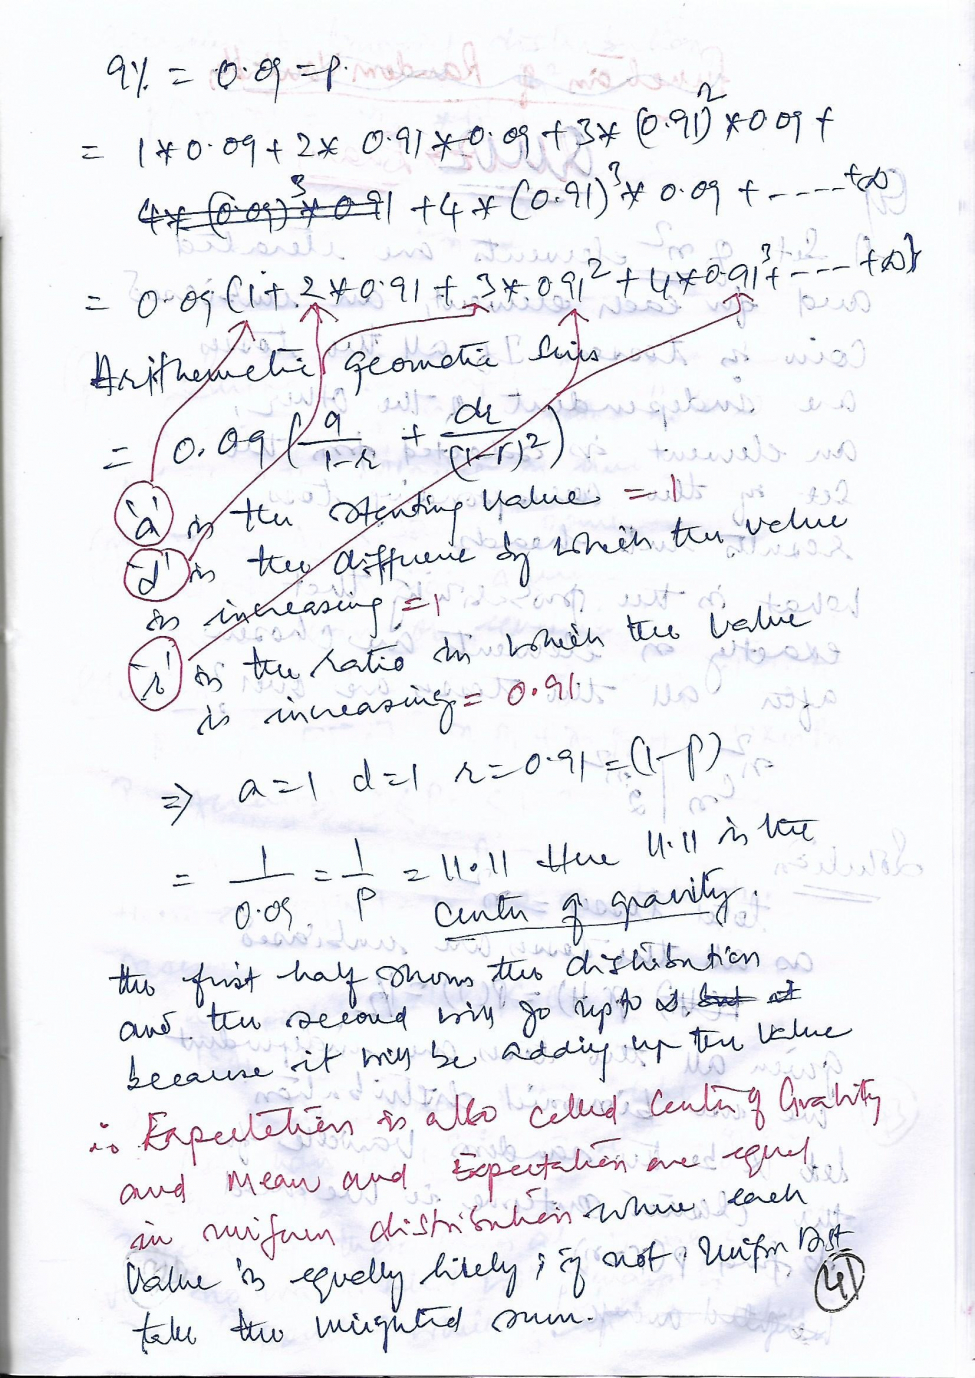 9% = 0.09 = P.
= 1*0.09 + 2* 0.91*0.09 + 3* (0.91)² *0.09 +
4* (0.09)³ * 0.91 + 4 * (0.91)³ * 0.09 + ----- +∞
= 0.09 (1 + 2*0.91 + 3* 0.91² + 4*0.91³ + ---- +∞)
Arithemetic geometic series
= 0.09 (a/1-r + dr/(1-r)²)
'a' is the starting value = 1
'd' is the difference by which the value
is increasing = 1
'r' is the ratio in which the value
is increasing = 0.91
⇒ a=1 d=1 r=0.91 = (1-P)
= 1/0.09 = 1/P = 11.11 Here 11.11 is the
center of gravity.
the first half shows the distribution
and the second will go up to
because it will be adding up the value
∴ Expectation is also called Center of Gravity
and Mean and Expectation are equal
in uniform distribution where each
value is equally likely ; if not Unifm Dist
take the weighted sum.
41